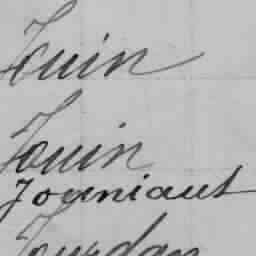 Jouin
Jouin
Joaniaut
Jourdan